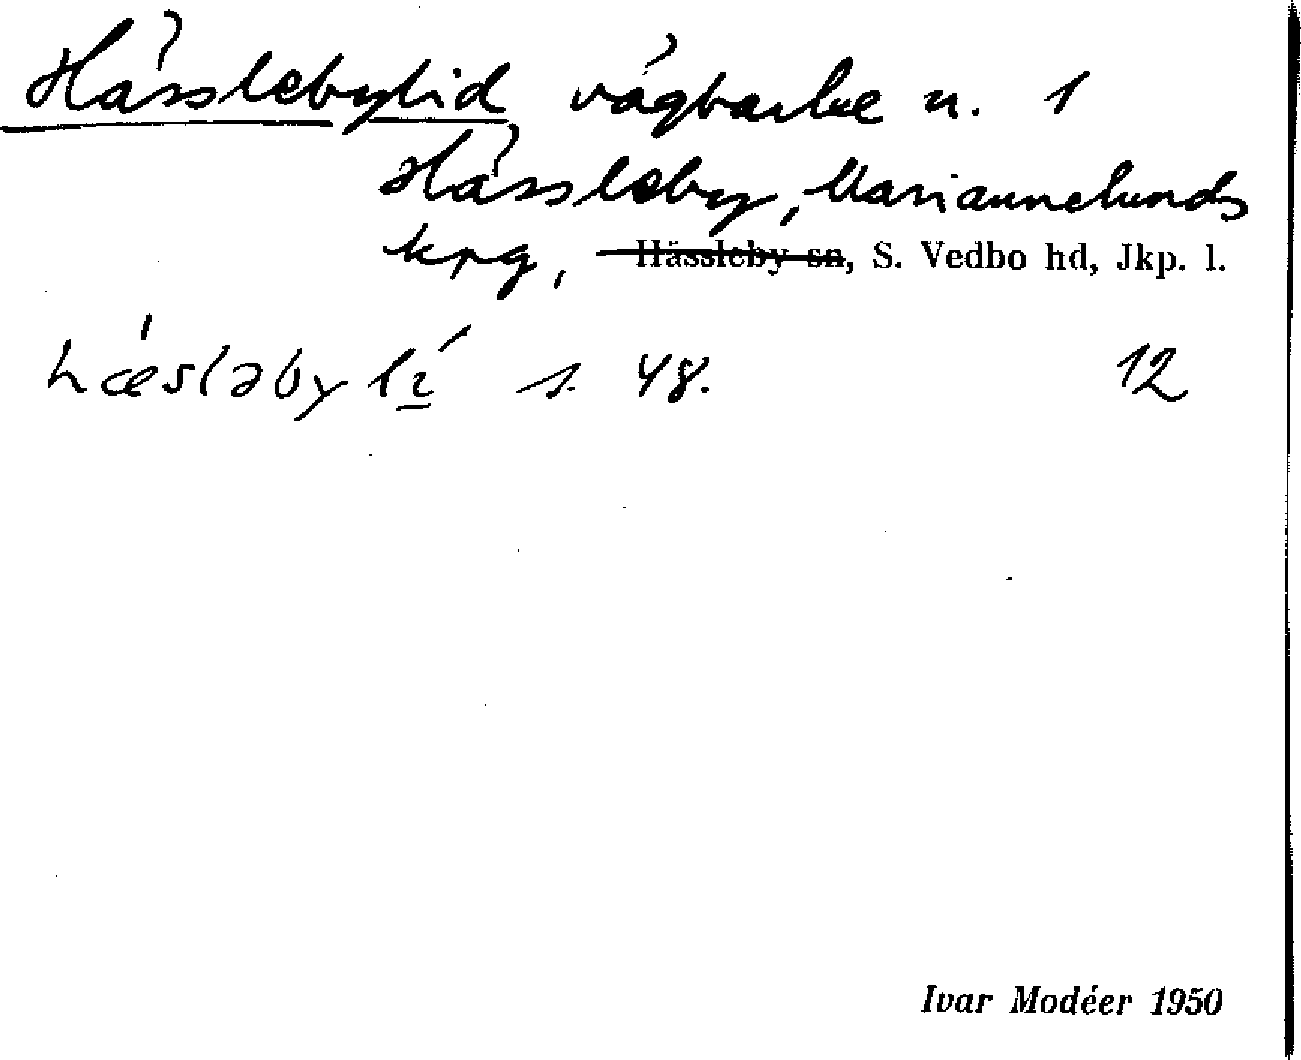 Hässlebylid vägbacke n. 1
Hässleby, Mariannelunds
krg, Hässleby sn, S. Vedbo hd, Jkp. l.
hæsləbylí s. 48. 12
Ivar Modéer 1950